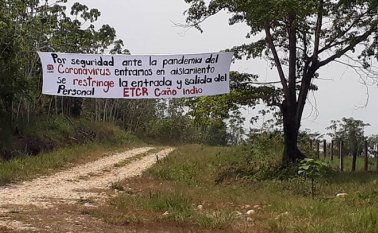 Por seguridad ante la pandemia del
Coronavirus entramos en aislamiento
se restringe la entrada y salida del
Personal ETCR Caño indio